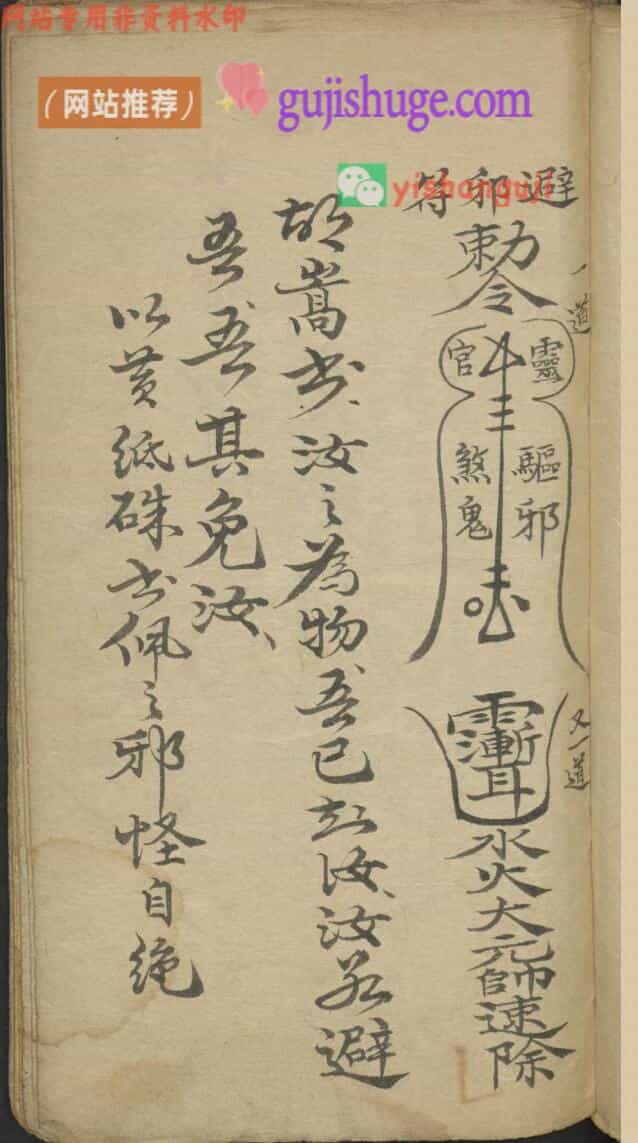 网站专用非资料水印
(网站推荐)
gujishuge.com
yishanguji
避邪符
一道
勅令
靈官
驅邪
煞鬼
又一道
水火大元帥速除
胡嵩
汝之為物吾已知汝汝若避
吾吾其免汝
以黄纸硃书佩之邪怪自绝